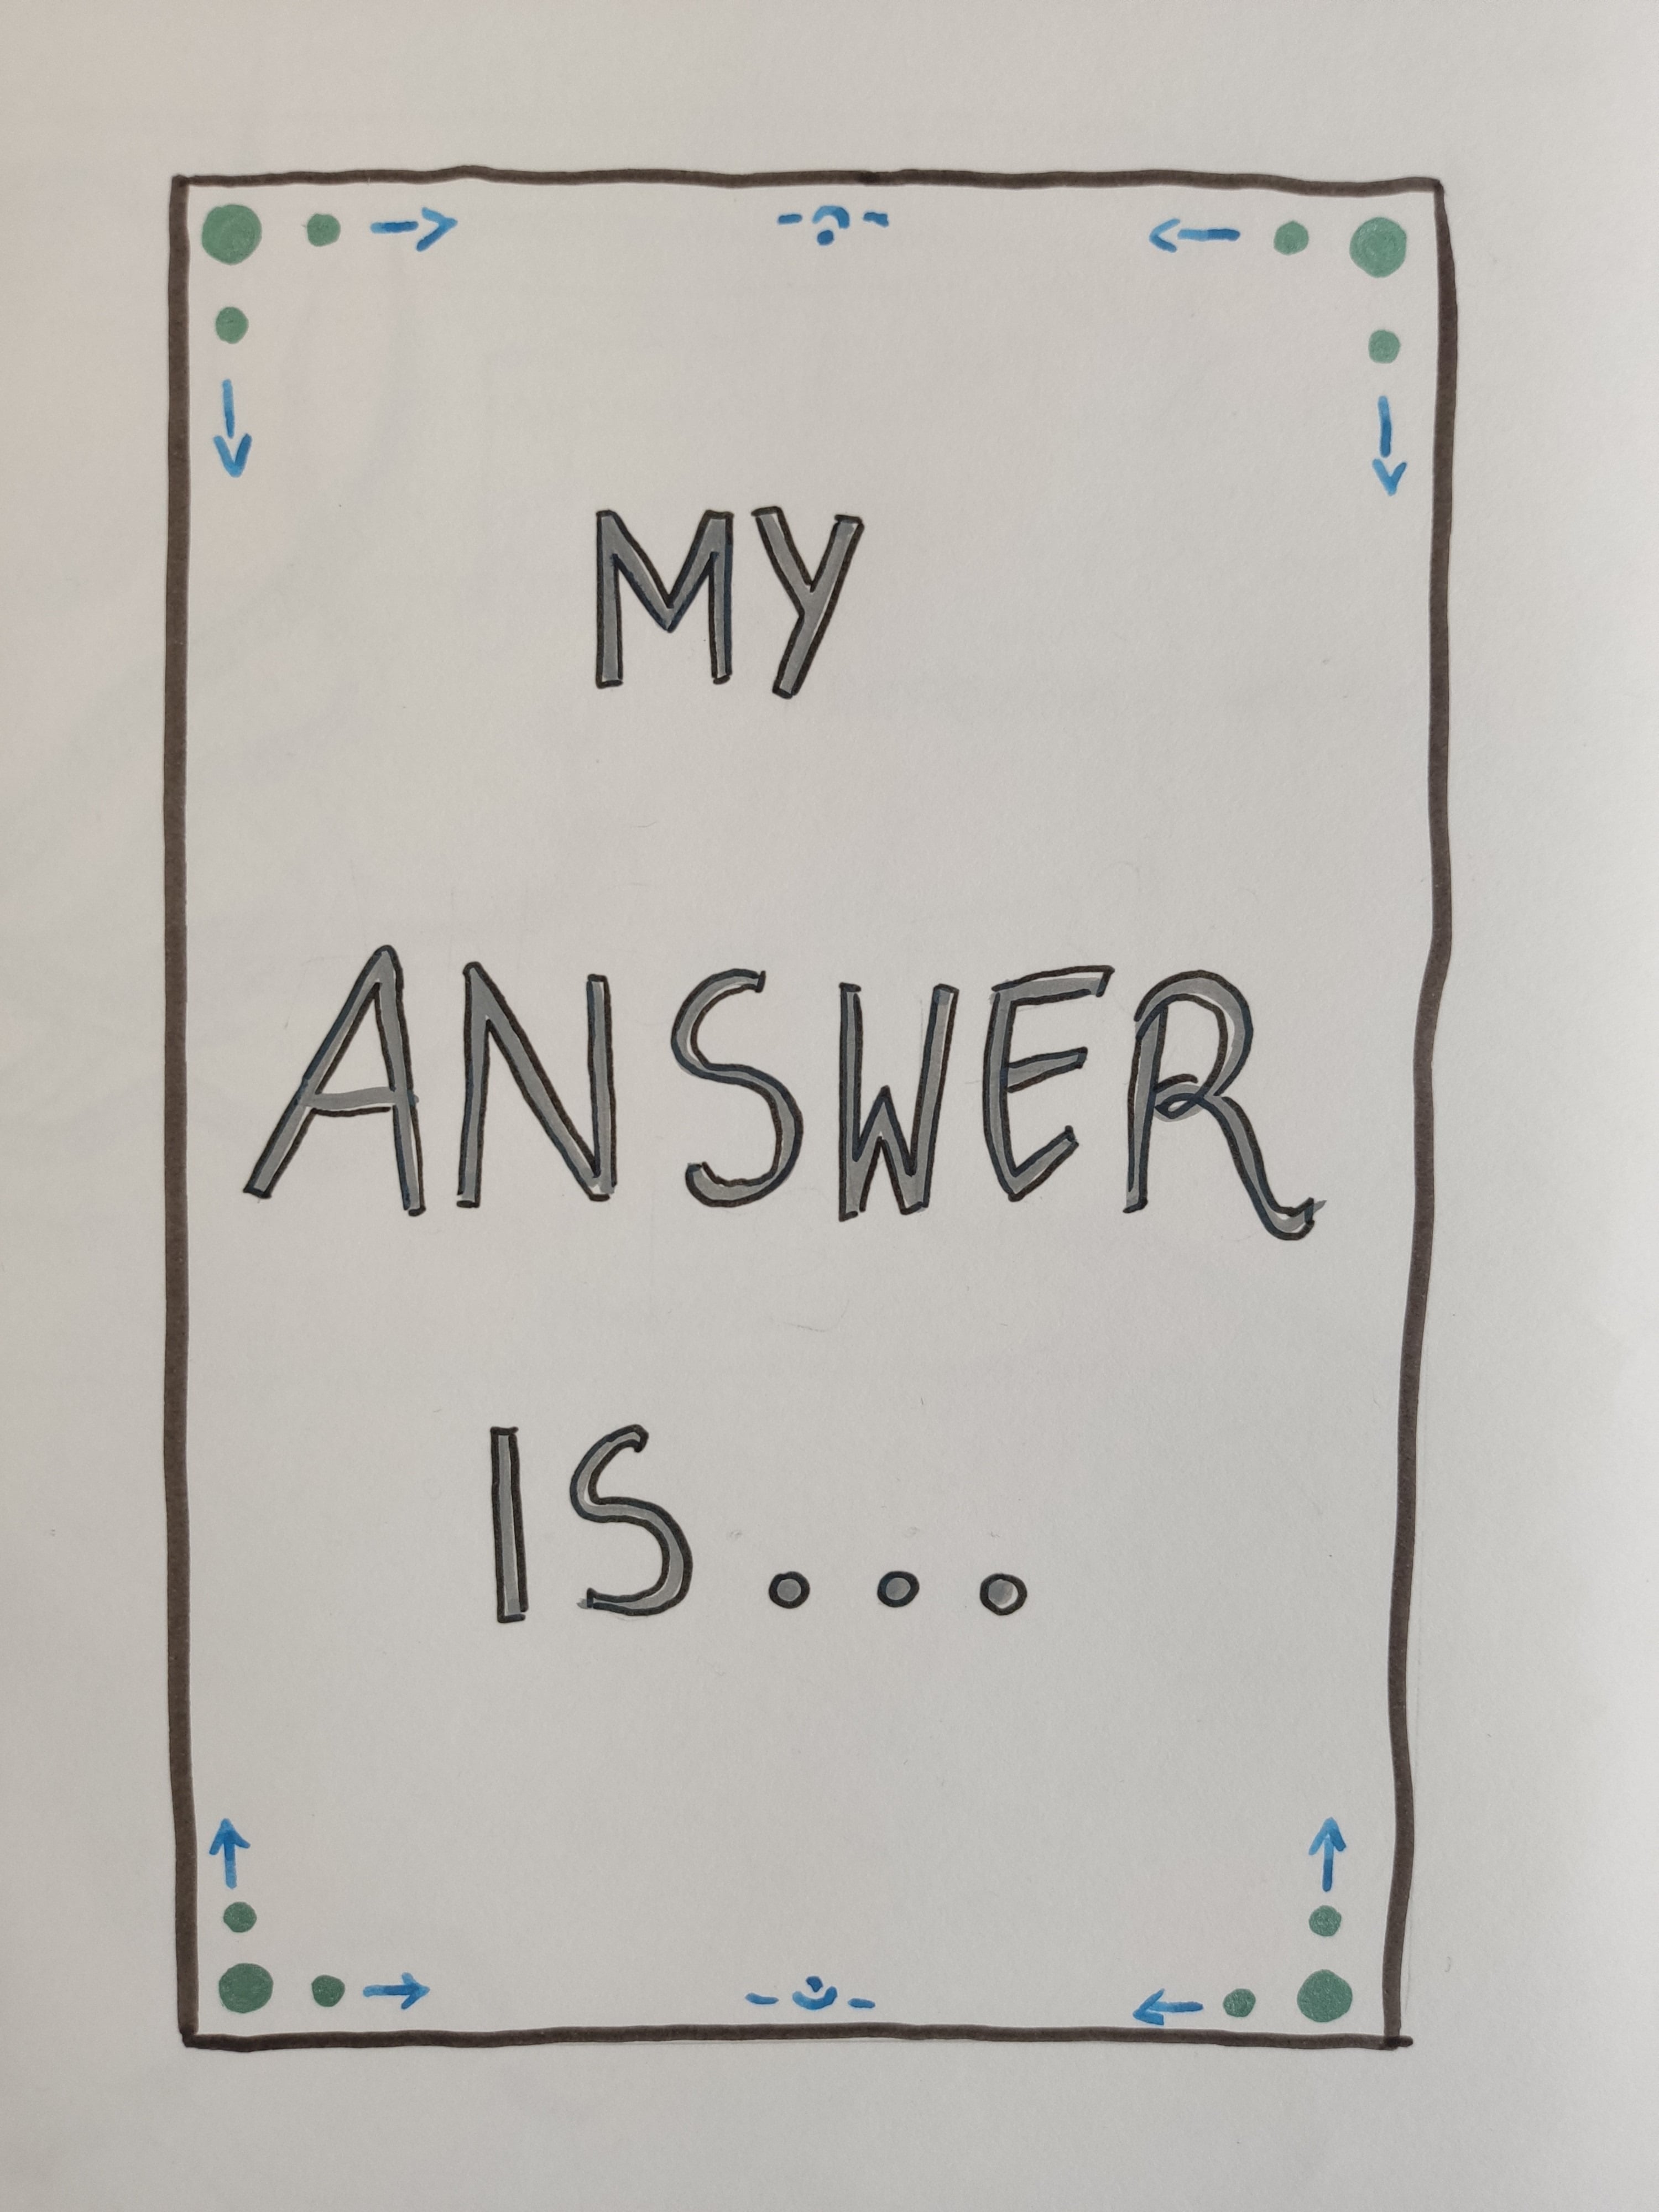 MY
ANSWER
IS...